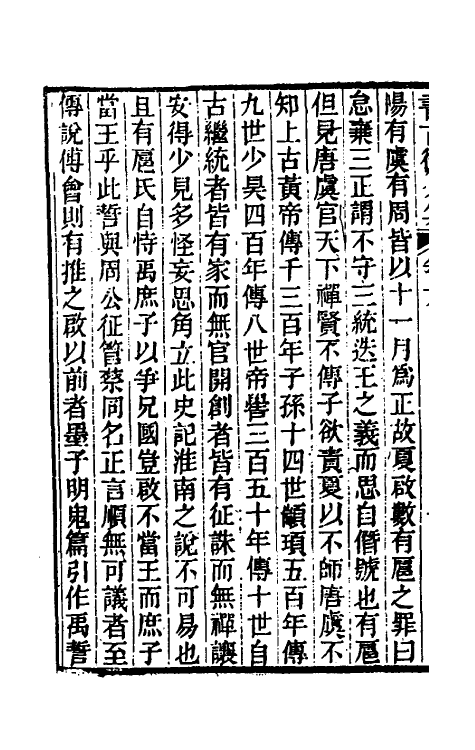 陽有虞有周皆以十一月為正故夏啟數有扈之罪曰
怠棄三正謂不守三統迭王之義而思自僭號也有扈
但見唐虞官天下禪賢不傳子欲責夏以不師唐虞不
知上古黃帝傳千三百年子孫十四世顓頊五百年傳
九世少昊四百年傳八世帝嚳三百五十年傳十世自
古繼統者皆有家而無官開創者皆有征誅而無禪讓
安得少見多怪妄思角立此史記淮南之說不可易也
且有扈氏自恃禹庶子以爭兄國豈啟不當王而庶子
當王乎此誓與周公征管蔡同名正言順無可議者至
傳說傅會則有推之啟以前者墨子明鬼篇引作禹誓